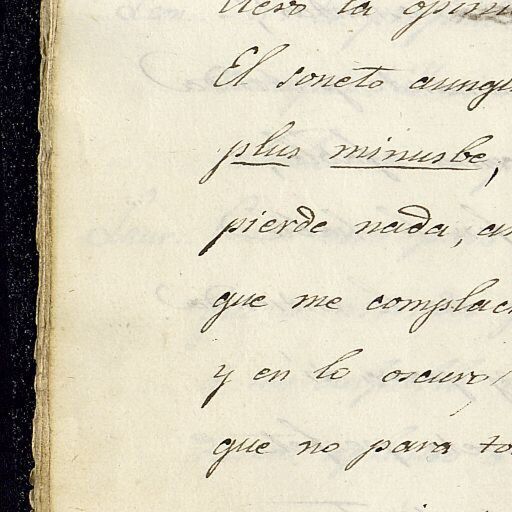 la opini
El soneto aunqu
plus minusbe,
pierde nada, an
que me complac
y en lo oscuro
que no para to